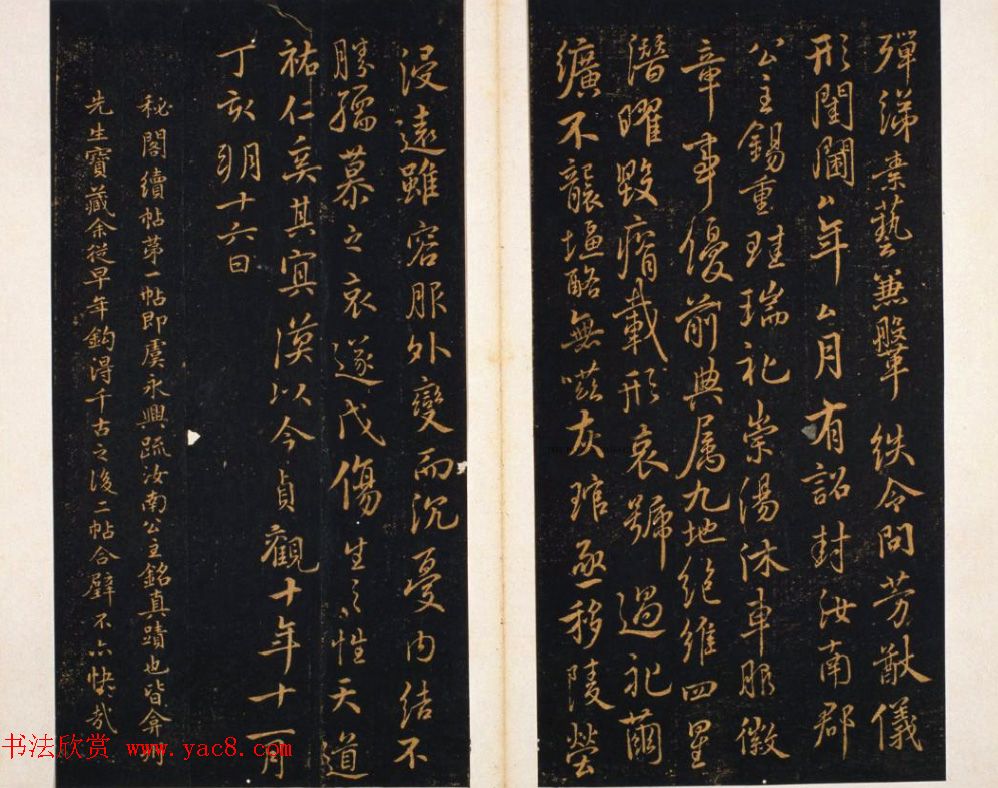 彈綈素藝兼鞶紩令問芳猷儀
形閨閫厶年厶月有詔封汝南郡
公主錫重珪瑞礼崇湯沐車服徽
章事優前典属九地絶維四星
潛曜毀瘠載形哀號過礼繭
纊不襲塩酪無嗞灰琯亟移陵塋
浸遠雖容服外變而沉憂内结不
勝孺慕之哀遂成傷生之性天道
祐仁奚其冥漠以今貞觀十年十一月
丁亥朔十六日
秘閣續帖第一帖即虞永興疏汝南公主銘真蹟也皆弇州
先生寶藏余從早年鈎得千古之後二帖合璧不亦快哉
书法欣赏 www.yac8.com